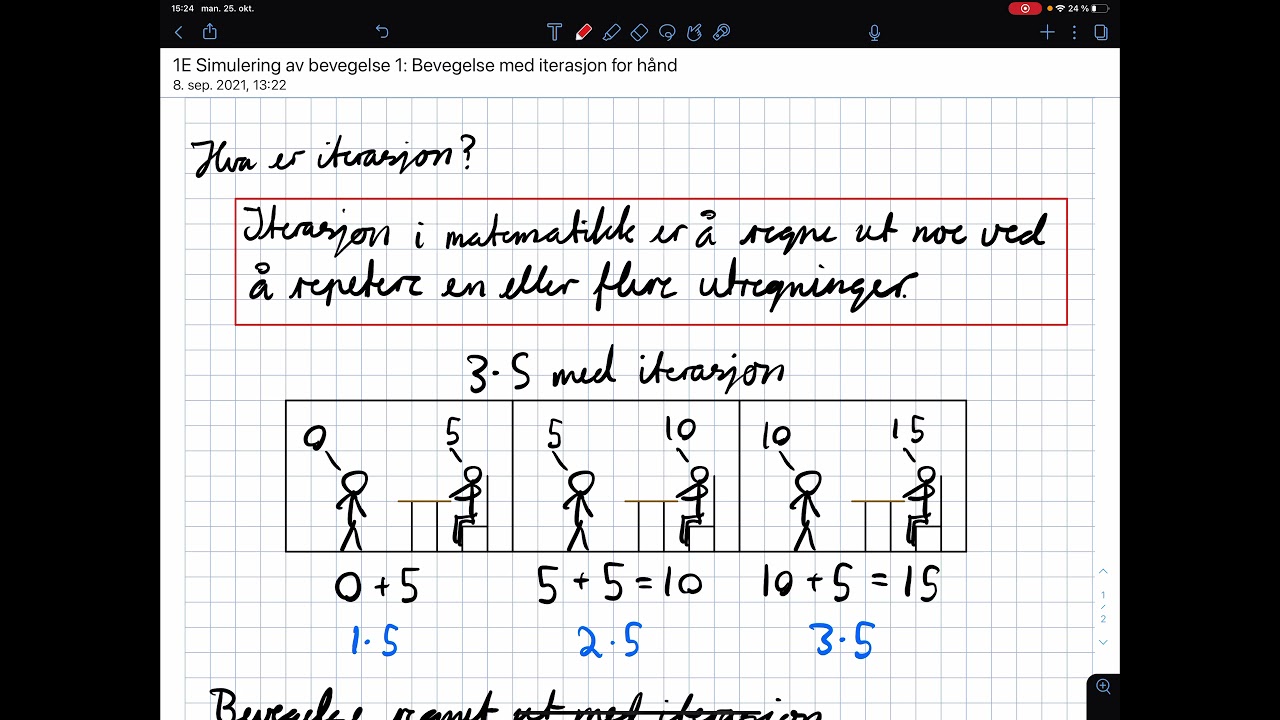 15:24 man. 25. okt.
24 %
1E Simulering av bevegelse 1: Bevegelse med iterasjon for hånd
8. sep. 2021, 13:22
Hva er iterasjon?
Iterasjon i matematikk er å regne ut noe ved
å repetere en eller flere utregninger.
3·5 med iterasjon
0 5 5 10 10 15
0+5 5+5=10 10+5=15
1·5 2·5 3·5
1
/
2
Bevegelse regnet ut med iterasjon